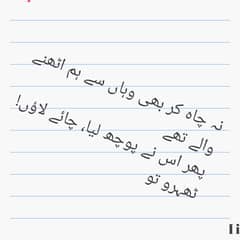 نہ چاہ کر بھی وہاں سے ہم اٹھنے
والے تھے
پھر اس نے پوچھ لیا، چائے لاؤں!
ٹھہرو تو